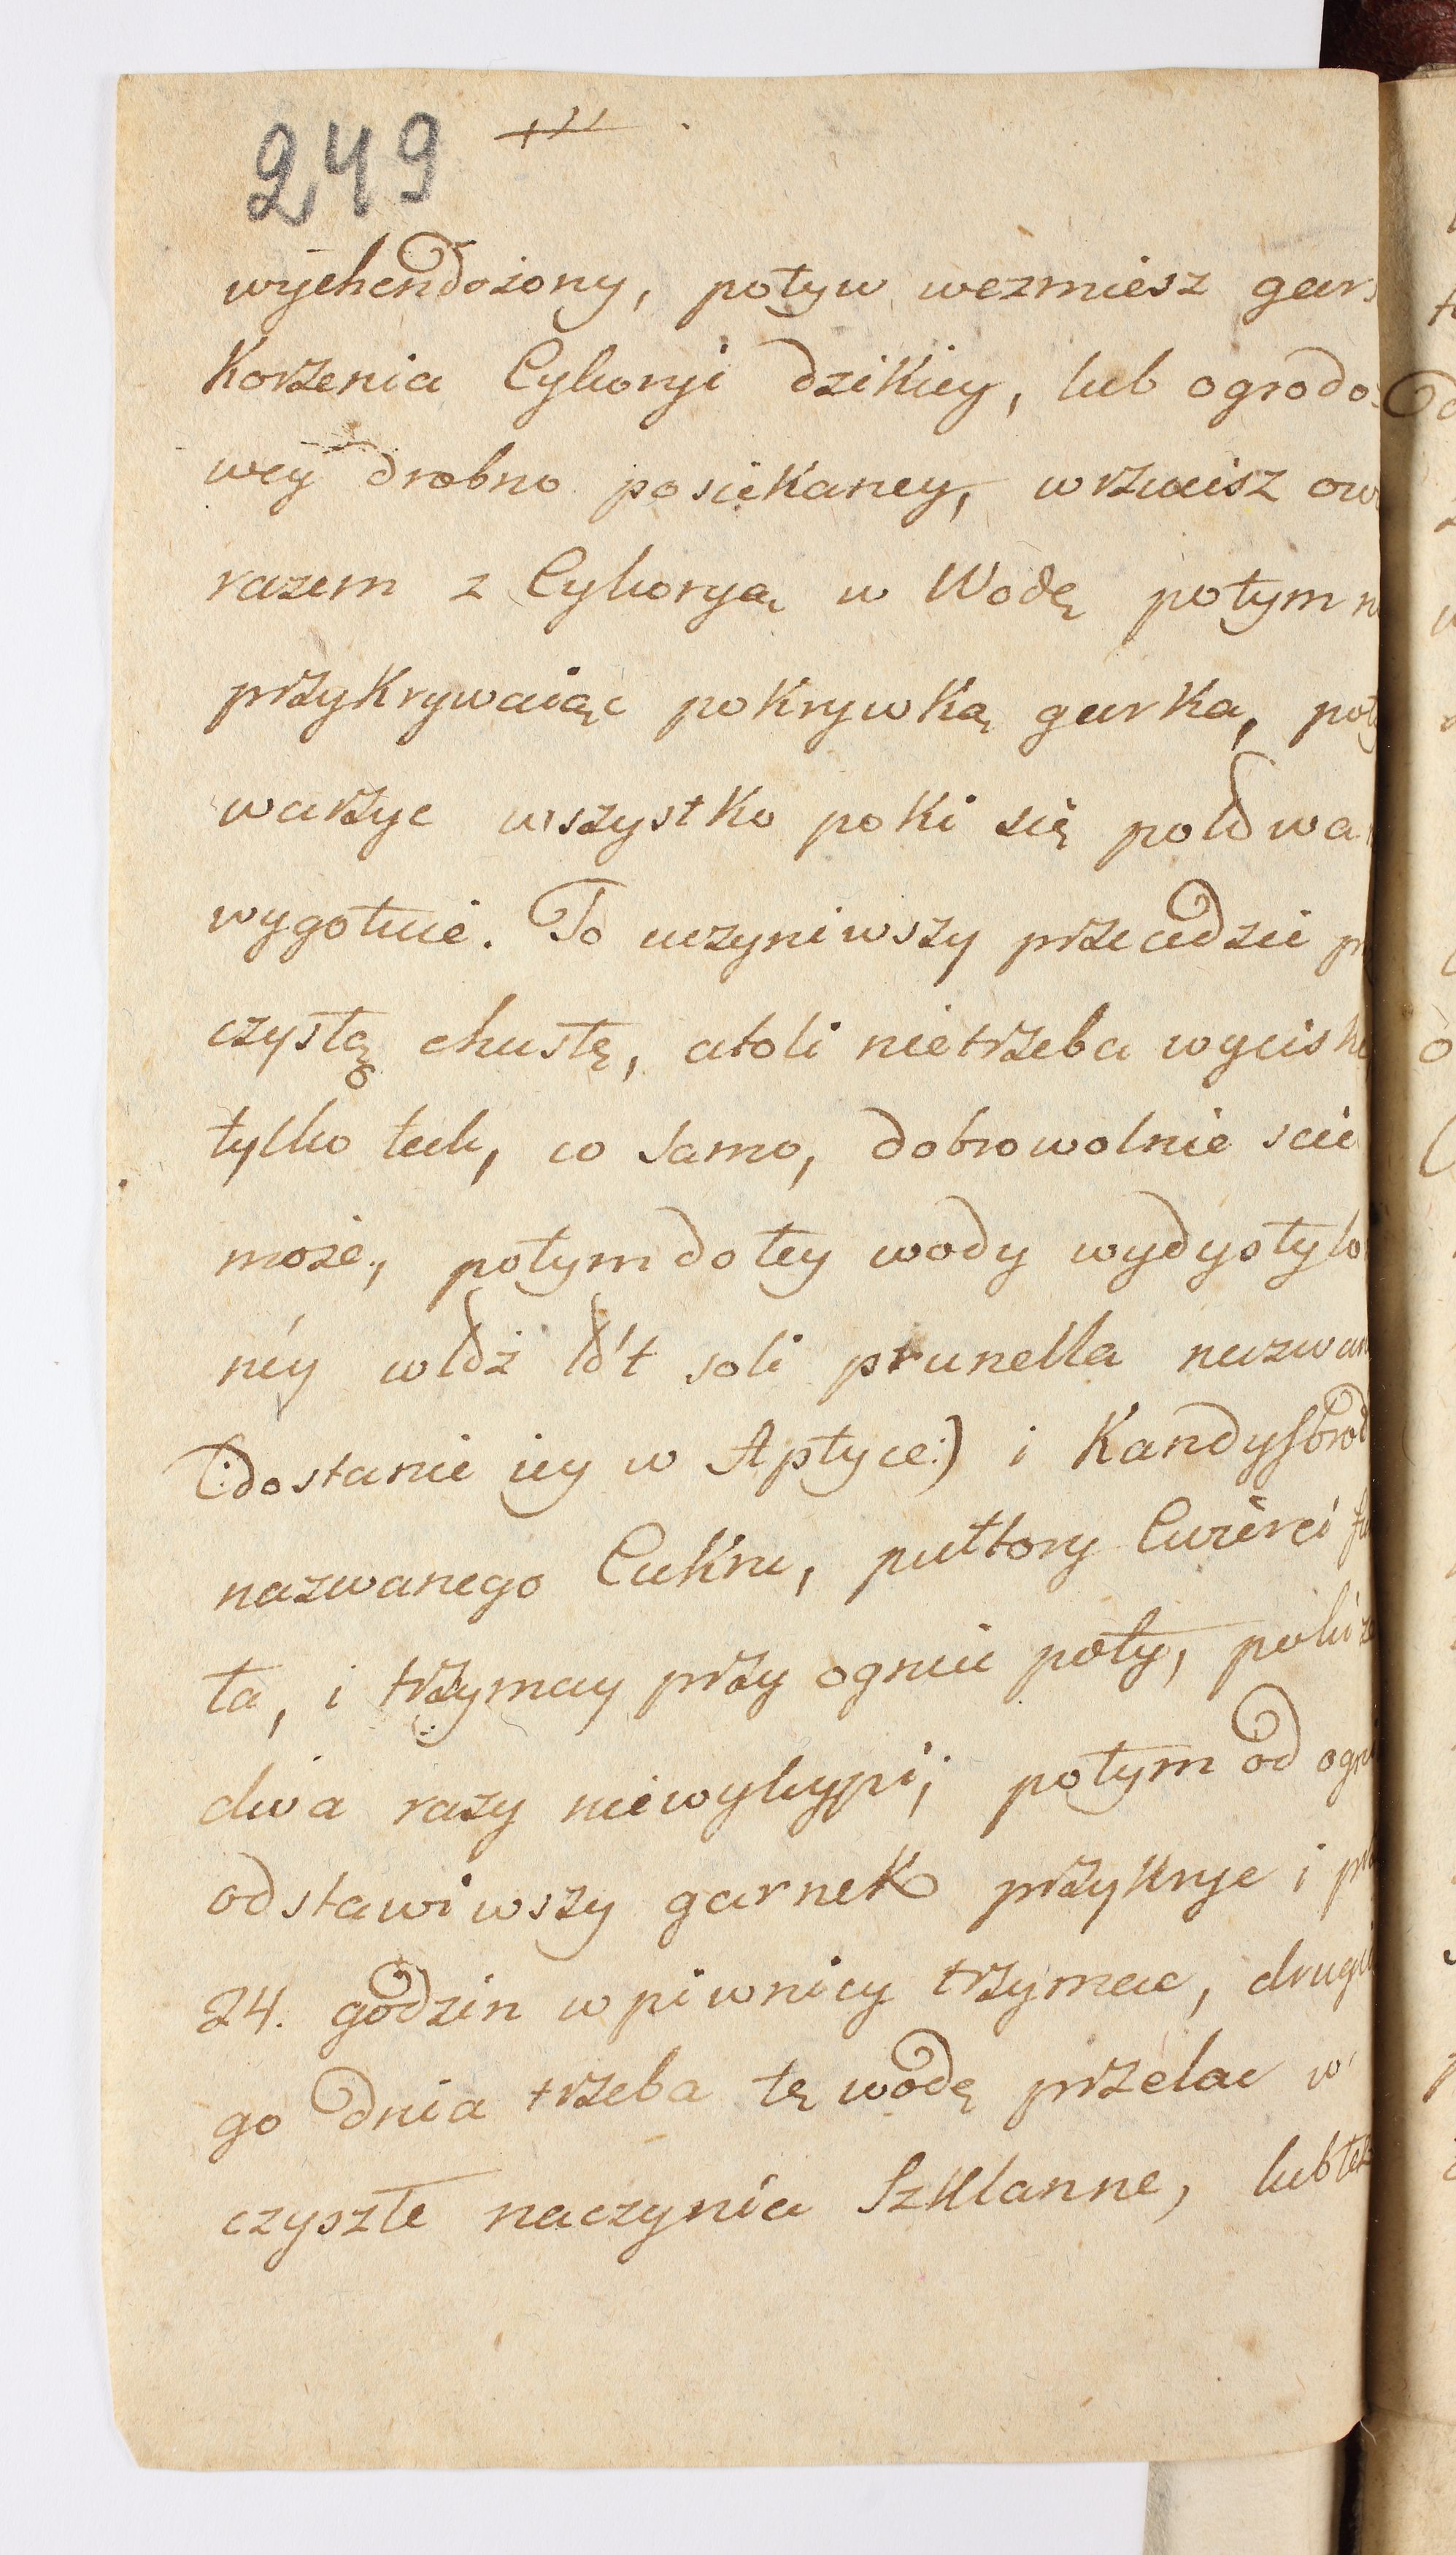 249
wychendożony, potyw wezmiesz gars
Korzenia Cykoryi dzikiey, lub ogrodo:
wey drobno posiekaney, wrzucisz ow
razem z Cykoryą w Wodę potym n
przykrywaiąc pokrywką garka, poty
warzyc wszystko poki się połowa
wygotuie. To uczyniwszy przecedzic pr
czystą chustę, atoli nietrzeba wycisk
tylko tak, co samo, dobrowolnie scie
może, potym do tey wody wydystylo
néy włóż łót soli prunella nazwan
(:dostanie iey w Aptyce:) i Kandysbrod
nazwanego Cukru, pułtory Cwierci fu
ta, i trzymay przy ogniu poty, poki ze
dwa razy niewykypi; potym od ogni
odstawiwszy garnek przykryc i prz
24. godzin w piwnicy trzymac, drugi
go dnia trzeba tę wodę przelac w
czyszte naczynia Szklanne, lub też